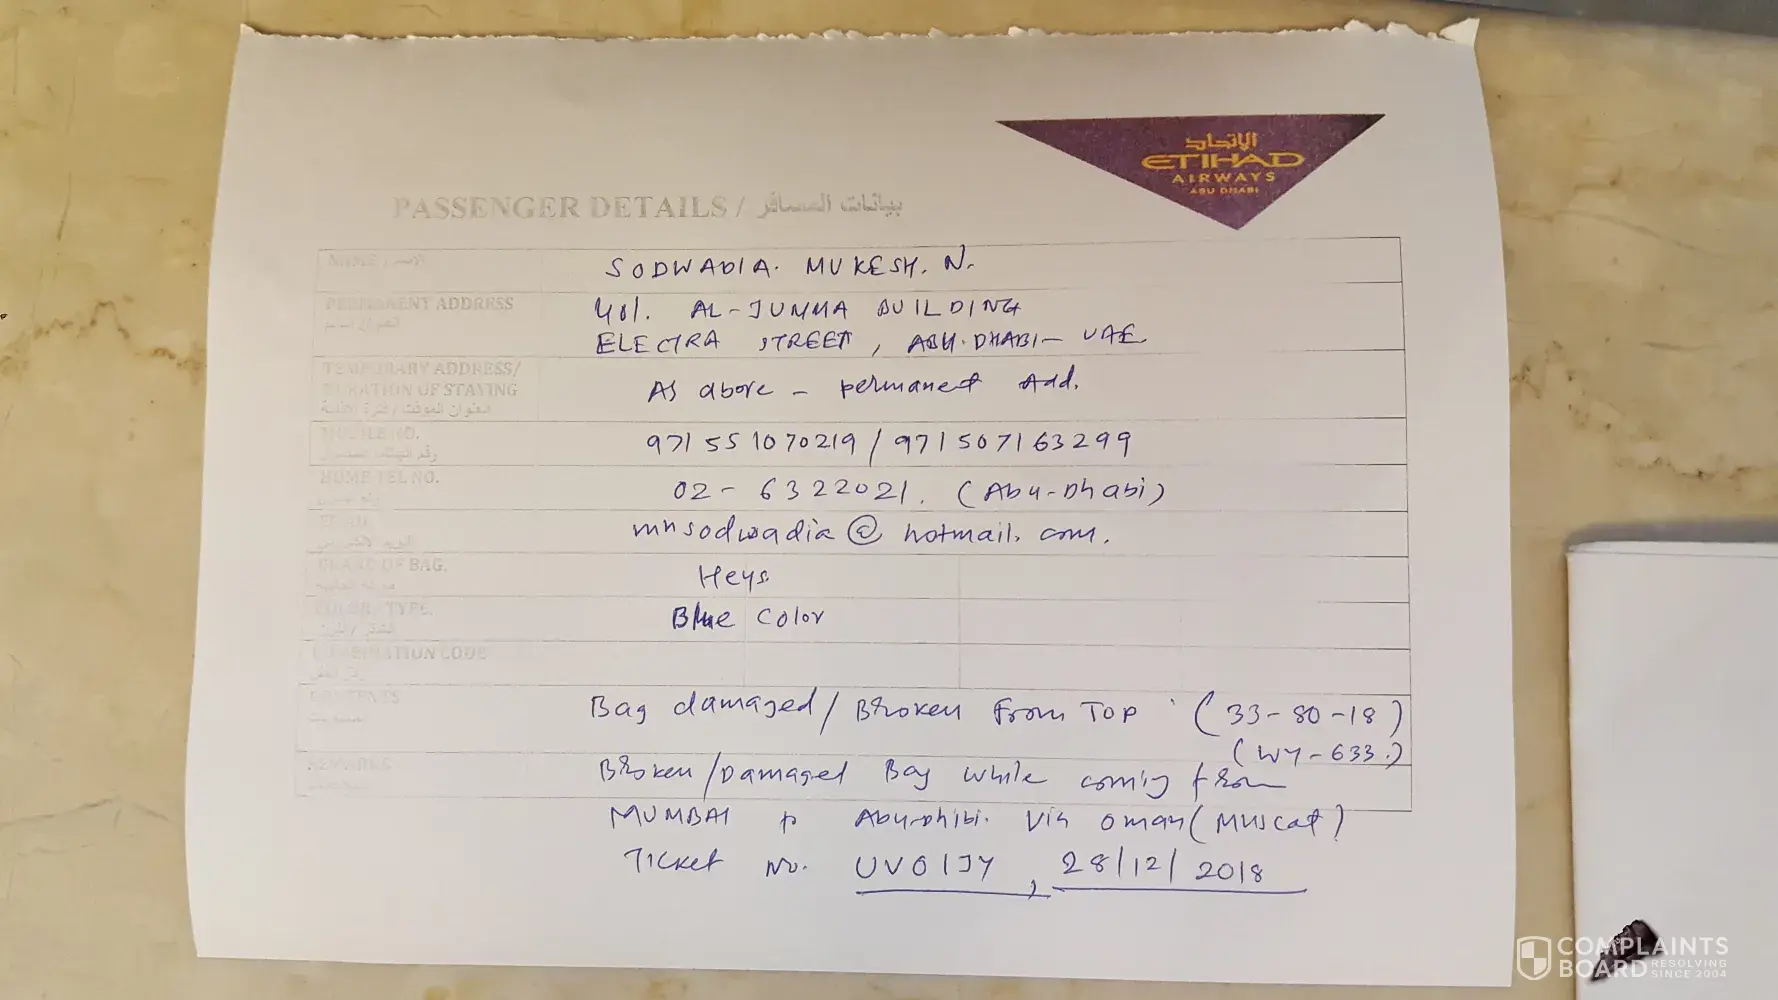 الإتحاد
ETIHAD
AIRWAYS
ABU DHABI
PASSENGER DETAILS / بيانات المسافر
NAME / الاسم SODWADIA. MUKESH. N.
PERMANENT ADDRESS 401. AL-JUMMA BUILDING
ELECTRA STREET, ABU.DHABI- UAE.
TEMPORARY ADDRESS/
DURATION OF STAYING As above - permanent Add.
العنوان المؤقت / فترة الاقامة
MOBILE NO. 971 55 1070219 / 971507163299
رقم الهاتف
HOME TEL NO. 02 - 6322021. (Abu-Dhabi)
EMAIL mnsodwadia@hotmail.com.
BRAND OF BAG. Heys
COLOR / TYPE. Blue color
CONTENTS Bag damaged / Broken From Top (33-80-18)
(WY-633.)
REMARKS Broken / Damaged Bag while coming from
MUMBAI to Abu-Dhibi. Via Oman (Muscat)
Ticket No. UVOIJY, 28/12/2018
COMPLAINTS
BOARD RESOLVING
SINCE 2004